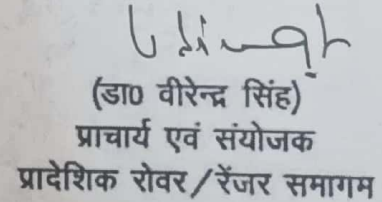 (डा0 वीरेन्द्र सिंह)
प्राचार्य एवं संयोजक
प्रादेशिक रोवर/रेंजर समागम